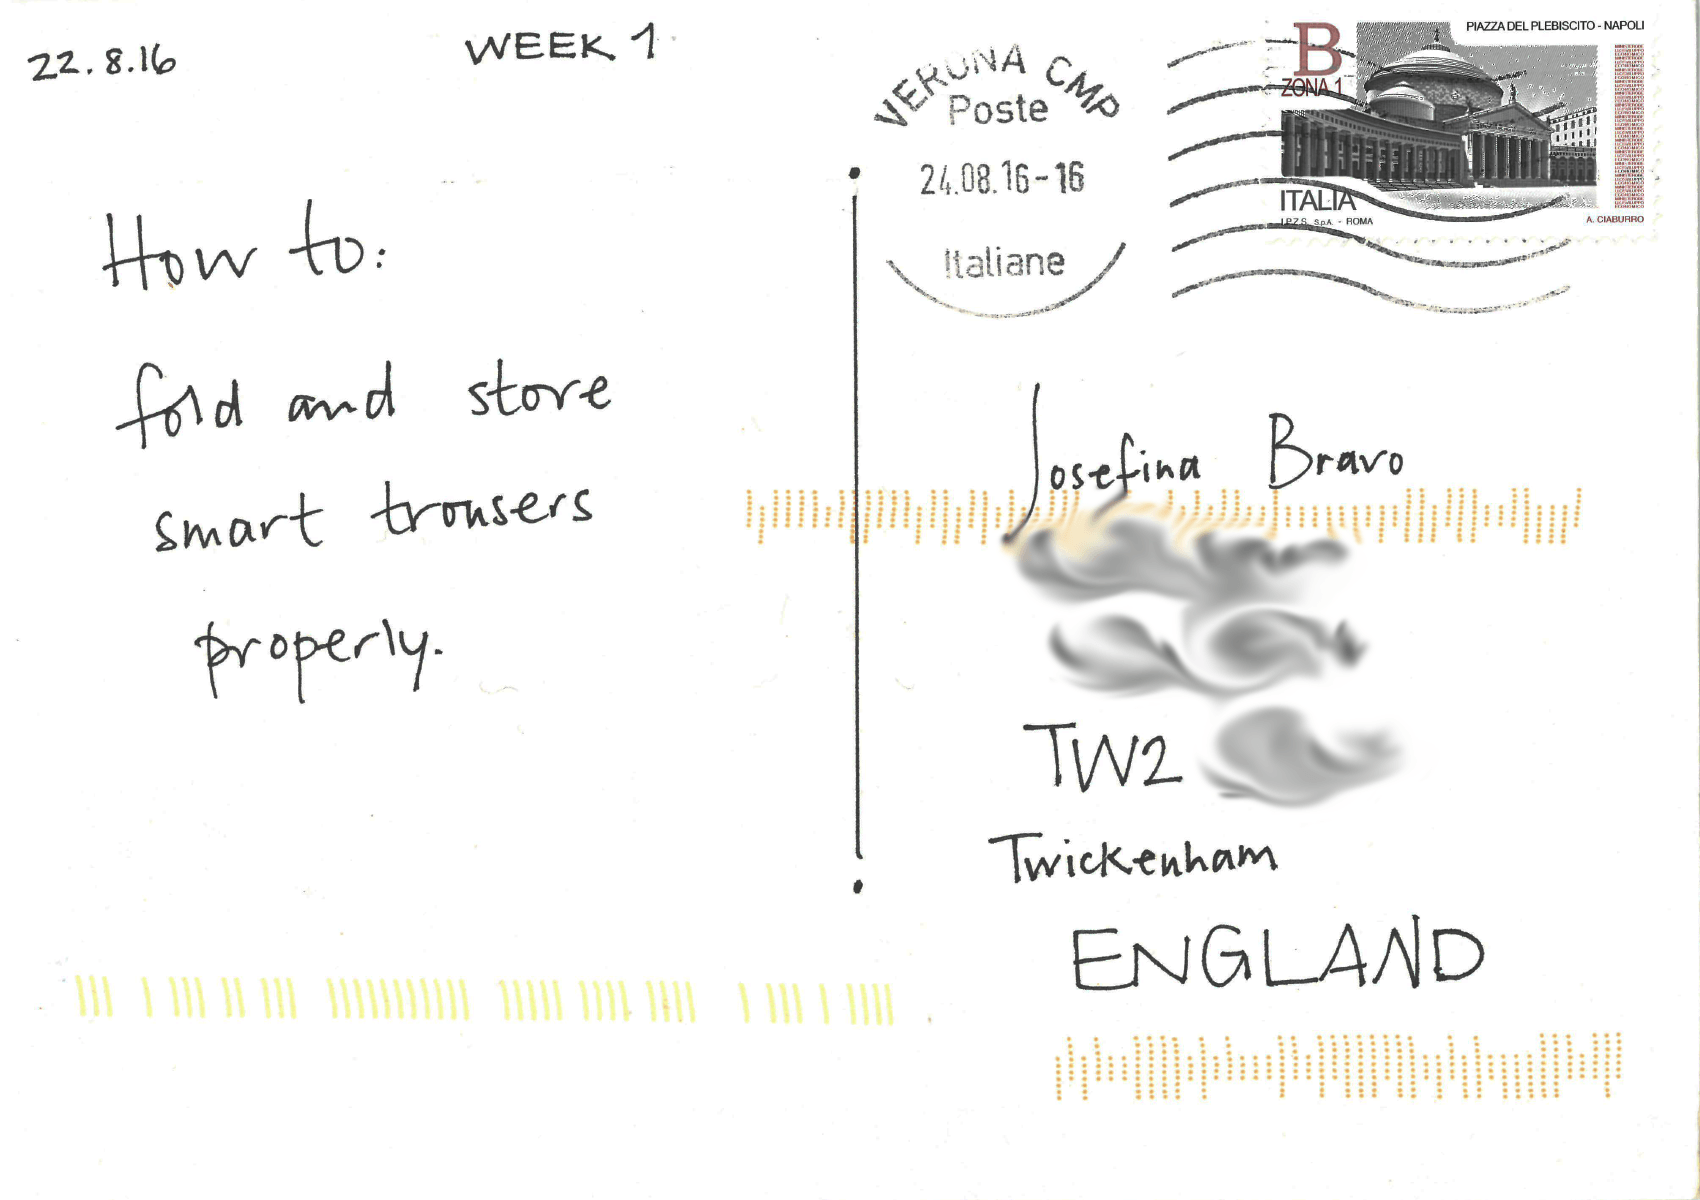 22.8.16
WEEK 1
How to:
fold and store
smart trousers
properly.
VERONA CMP
Poste
24.08.16-16
Italiane
PIAZZA DEL PLEBISCITO - NAPOLI
B
ZONA 1
ITALIA
I.P.Z.S. S.p.A. - ROMA
A. CIABURRO
Josefina Bravo
TW2
Twickenham
ENGLAND